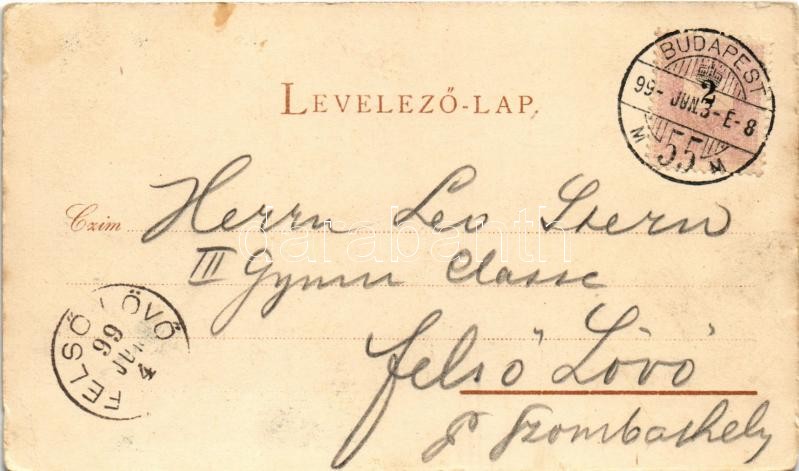 LEVELEZŐ-LAP.
BUDAPEST
2
99- JUN.3-E-8
M 55 M
Czim Herrn Leo Stern
III Gymn Classe
Felső Lövő
FELSŐ LÖVŐ
99
JUN
4
p Szombathely
darabanth